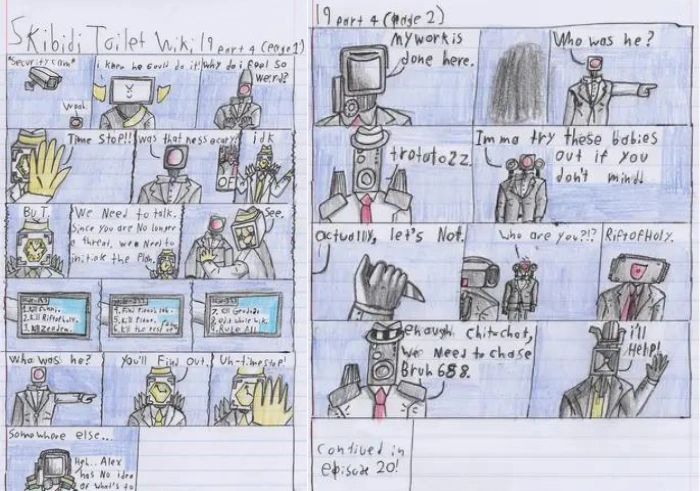 Skibidi Toilet Wiki 19 part 4 (page 1)
*Security cam*
Woah.
I knew he could do it!
Why do i feel so
weird?
Time stop!!
Was that nessacery?
idk
But.
We Need to talk.
Since you are No longer
a threat, we Need to
the Plan.
See.
Who was he?
You'll Find out.
Uh- time stop!
Somewhere else...
Heh.. Alex
has No idea
of what's to
19 part 4 (page 2)
My work is
done here.
Who was he?
trototozz.
Imma try these babies
out if you
don't mind!
actually, let's Not.
Who are you?!?
RiftofHoly.
enough chit-chat,
We Need to chase
Bruh 688.
i'll
Help!
Contiued in
episode 20!